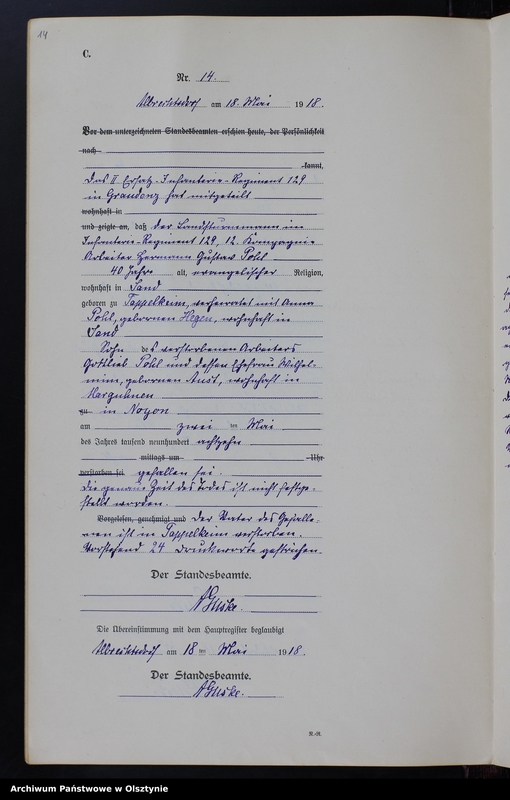 14
C.
Nr. 14.
Albrechtsdorf am 18. Mai 1918.
Vor dem unterzeichneten Standesbeamten erschien heute, der Persönlichkeit
nach
kannt,
Das II Ersatz-Infanterie-Regiment 129
in Graudenz hat mitgeteilt
wohnhaft in
und zeigte an, daß der Landsturmmann im
Infanterie-Regiment 129, 12. Kompagnie
Arbeiter Hermann Gustav Pohl
40 Jahre alt, evangelischer Religion,
wohnhaft in Sand
geboren zu Tappelkeim, verheiratet mit Anna
Pohl, gebornen Hegen, wohnhaft in
Sand
Sohn des verstorbenen Arbeiters
Gottlieb Pohl und dessen Ehefrau Wilhel-
mine, gebornen Aust, wohnhaft in
Marguhnen
zu in Noyon
am zwei ten Mai
des Jahres tausend neunhundert achtzehn
mittags um Uhr
verstorben sei gefallen sei.
Die genaue Zeit des Todes ist nicht festge-
stellt worden.
Vorgelesen, genehmigt und Der Vater des Gefalle-
nen ist in Tappelkeim verstorben.
Vorstehend 24 Druckworte gestrichen.
Der Standesbeamte.
Die Übereinstimmung mit dem Hauptregister beglaubigt
Albrechtsdorf am 18 ten Mai 1918.
Der Standesbeamte.
R.-R.
Archiwum Państwowe w Olsztynie